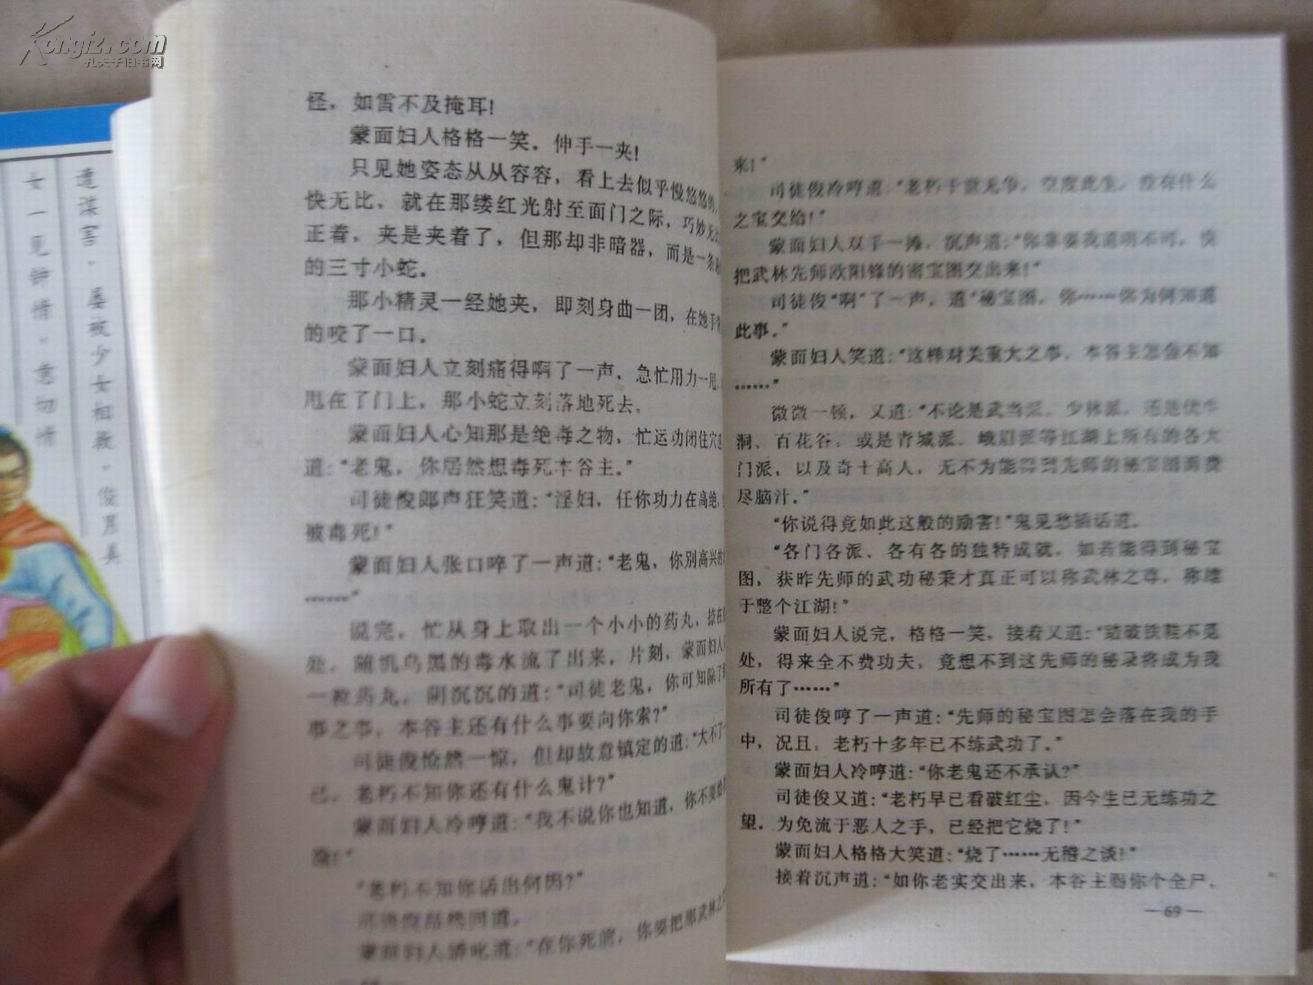 Kongfz.com
孔夫子旧书网
遭谋害，屡被少女相救，俊男美
女一见钟情。意切情
怪，如雷不及掩耳！
蒙面妇人格格一笑，伸手一夹！
只见她姿态从从容容，看上去似乎慢悠悠的，
快无比，就在那缕红光射至面门之际，巧妙无
正着，夹是夹着了，但那却非暗器，而是一条
的三寸小蛇。
那小精灵一经她夹，即刻身曲一团，在她手
的咬了一口。
蒙面妇人立刻痛得啊了一声，急忙用力一甩，
甩在了门上，那小蛇立刻落地死去。
蒙面妇人心知那是绝毒之物，忙运功闭住穴
道：“老鬼，你居然想毒死本谷主。”
司徒俊郎声狂笑道：“淫妇，任你功力在高绝，
被毒死！”
蒙面妇人张口啐了一声道：“老鬼，你别高兴的
……”
说完，忙从身上取出一个小小的药丸，掠在
处，随饥乌黑的毒水流了出来，片刻，蒙面妇人
一粒药丸，阴沉沉的道：“司徒老鬼，你可知除了
事之事，本谷主还有什么事要向你索？”
司徒俊怆然一惊，但却故意镇定的道：“大不了一
己，老朽不知你还有什么鬼计？”
蒙面妇人冷哼道：“我不说你也知道，你不要给
“老朽不知你话出何因？”
司徒俊昂然回道。
蒙面妇人娇叱道：“在你死前，你要把那武林之
来！”
司徒俊冷哼道：“老朽于世无争，空度此生，没有什么
之宝交给！”
蒙面妇人双手一摊，沉声道：“你靠要我道明不可，快
把武林先师欧阳锋的密宝图交出来！”
司徒俊“啊”了一声，道“秘宝图，你……你为何知道
此事。”
蒙面妇人笑道：“这样对关重大之事，本谷主怎会不知
……”
微微一顿，又道：“不论是武当派、少林派，还是伏牛
洞、百花谷，或是青城派、峨眉派等江湖上所有的各大
门派，以及奇士高人，无不为能得到先师的秘宝图而费
尽脑汁。”
“你说得竟如此这般的励害！”鬼见愁插话道。
“各门各派、各有各的独特成就，如若能得到秘宝
图，获昨先师的武功秘秉才真正可以称武林之尊，称雄
于整个江湖！”
蒙面妇人说完，格格一笑，接着又道：“踏破铁鞋不见
处，得来全不费功夫，竟想不到这先师的秘录将成为我
所有了……”
司徒俊哼了一声道：“先师的秘宝图怎会落在我的手
中，况且，老朽十多年已不练武功了。”
蒙面妇人冷哼道：“你老鬼还不承认？”
司徒俊又道：“老朽早已看破红尘，因今生已无练功之
望，为免流于恶人之手，已经把它烧了！”
蒙面妇人格格大笑道：“烧了……无稽之谈！”
接着沉声道：“如你老实交出来，本谷主赐你个全尸，
—69—